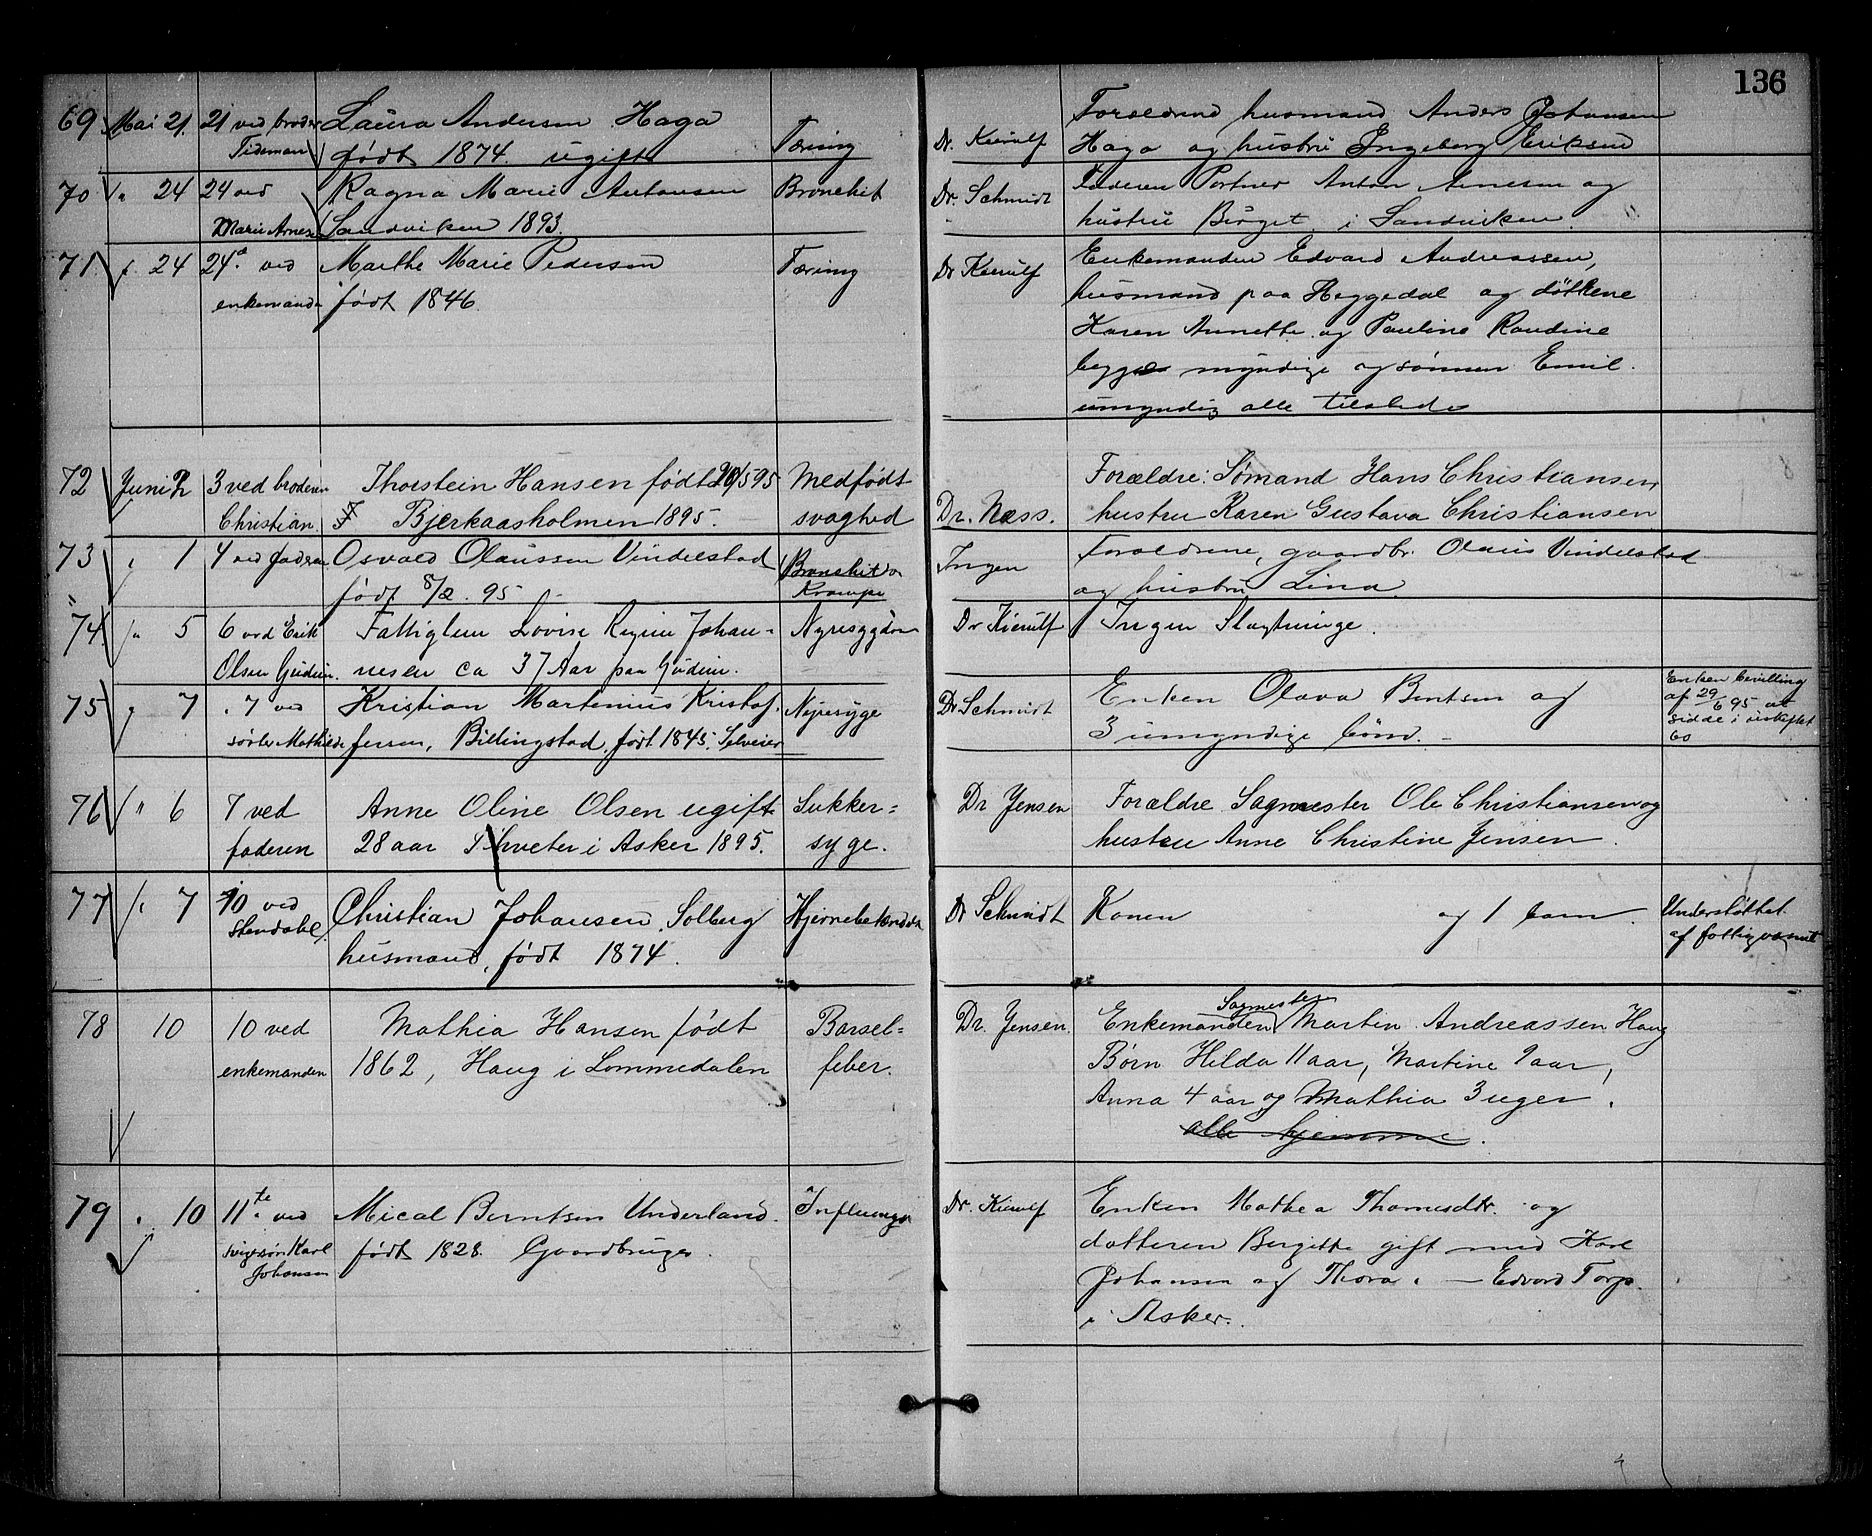 136
69 Mai 21. 21 ved broder Laura Andersen Haga Tæring Dr. Kierulf Forældrene husmand Anders Johansen
Tideman født 1874. ugift Haga og hustru Ingeborg Eriksen
70 " 24 24 ved Ragna Marie Antonsen Bronchit Dr. Schmidt Faderen Portner Anton Arnesen og
Marie Arnesen Sandviken 1893. hustru Birget i Sandviken
71 " 24 24de ved Marthe Marie Pedersen Tæring Dr Kierulf Enkemanden Edvard Andreassen,
enkemanden født 1846. husmand paa Heggedal og døttrene
Karen Annette og Pauline Randine
begge myndige og sønnen Emil
umyndig alle tilstede
72 Juni 2 3 ved broderen Thorstein Hansen født 20/5 95 Medfødt Forældre: Sømand Hans Christiansen,
Christian. Bjerkaasholmen 1895. svaghed Dr. Næss. hustru Karen Gustava Christiansen
73 " 1 4 ved faderen Osvald Olaussen Vindelstad Bronchit o Ingen Forældrene, gaardbr. Olaus Vindelstad
født 8/2. 95 - Krampe og hustru Lina
74 " 5 6 ved Erik Fattiglem Lovise Regine Johan- Nyresygdom Dr Kierulf Ingen Slægtninge.
Olsen Gudem. nesen ca 37 Aar paa Gudem.
75 " 7 " 7 ved Kristian Martenius Kristof- Nyresyge Dr Schmidt Enken Olava Bentsen og Enken bevilling
søster Mathilde fersen, Billingstad, født 1845. Selveier 3 umyndige børn. - af 29/6 95 at
sidde i uskiftet
bo
76 " 6 7 ved Anne Oline Olsen ugift Sukker= Dr Jensen Forældre Sagmester Ole Christiansen og
faderen 28 aar Tveter i Asker 1895. syge. hustru Anne Christine Jensen.
77 " 7 10 ved Christian Johansen Solberg Hjernebetændelse Dr Schmidt Konen og 1 barn. Understøttet
Stendahl. husmand, født 1874. af fattigvæsnet
78 10 10 ved Mathia Hansen født Barsel= Dr. Jensen Enkemanden Sagmester Martin Andreassen Haug
enkemanden 1862, Haug i Lommedalen feber. Børn Hilda 11 aar, Martine 9 aar,
Anna 4 aar og Mathia 3 uger.
alle hjemme.
79 " 10 11te ved Mical Berntsen Underland. Influenza Dr. Kierulf Enken Mathea Thomesdtr. og
svigersøn Karl født 1828. Gaardbruger. datteren Bergitte gift med Karl
Johansen Johansen og Thora " — Edvard Torp
i Asker.